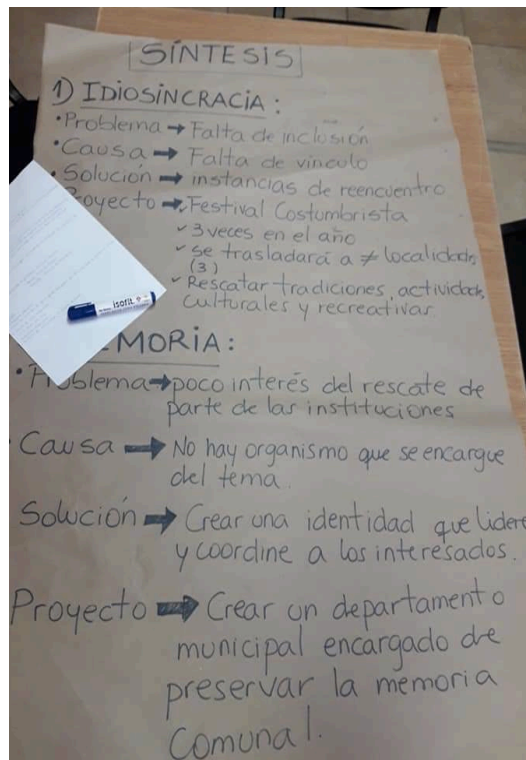 SÍNTESIS
1) IDIOSINCRACIA :
• Problema → Falta de inclusión
• Causa → Falta de vínculo
• Solución → instancias de reencuentro
royecto → Festival Costumbrista
✓ 3 veces en el año
✓ se trasladará a ≠ localidades
(3)
✓ Rescatar tradiciones, actividades,
culturales y recreativas
isofit
EMORIA :
• Problema → poco interés del rescate de
parte de las instituciones
Causa → No hay organismo que se encargue
del tema.
Solución → Crear una identidad que lidere
y coordine a los interesados.
Proyecto → Crear un departamento
municipal encargado de
preservar la memoria
comunal.